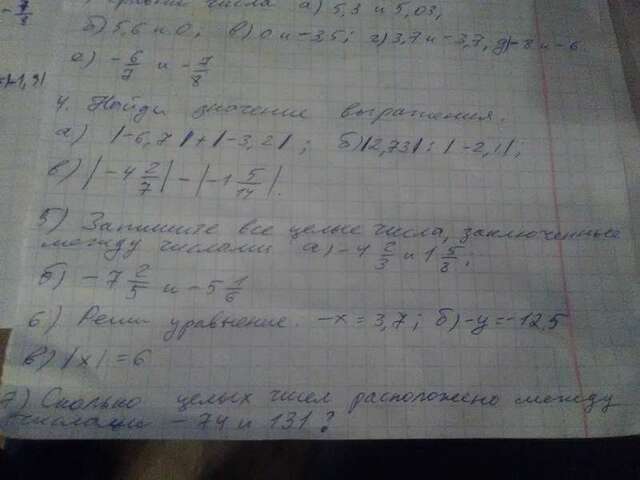 -7/8 сравни числа а) 5,3 и 5,03,
б) 5,6 и 0, в) 0 и -3,5; г) 3,7 и -3,7, д) -8 и -6
е) -6/7 и -7/8
4. Найди значение выражения.
а) |-6,7|+|-3,2|; б) |2,73|:|-2,1|;
в) |-4 2/7|-|-1 5/14|.
5) Запишите все целые числа, заключенные
между числами а) -4 2/3 и 1 5/8;
б) -7 2/5 и -5 1/6
6) Реши уравнение. -х=3,7; б) -у=-12,5
в) |х|=6
7) Сколько целых чисел расположено между
числами -74 и 131?